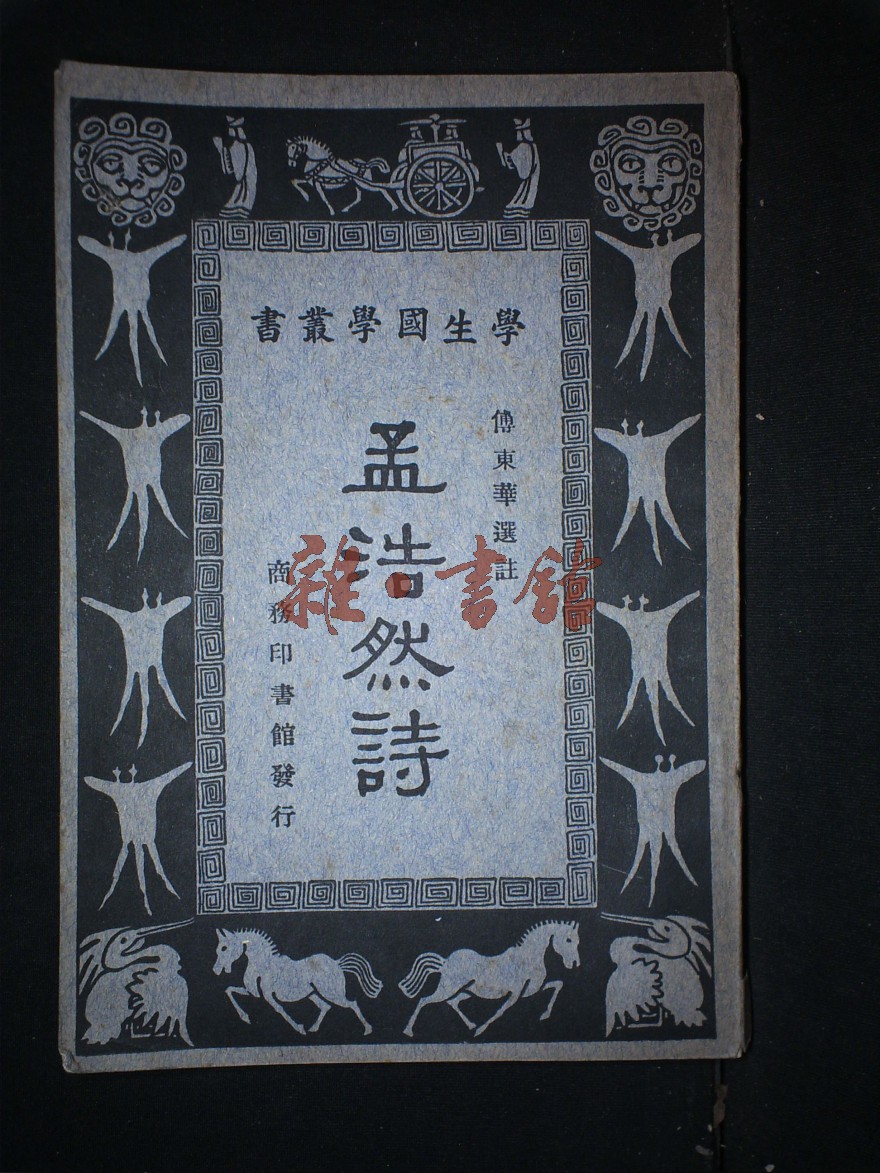 學生國學叢書
傅東華選註
孟浩然詩
商務印書館發行
雜·書館